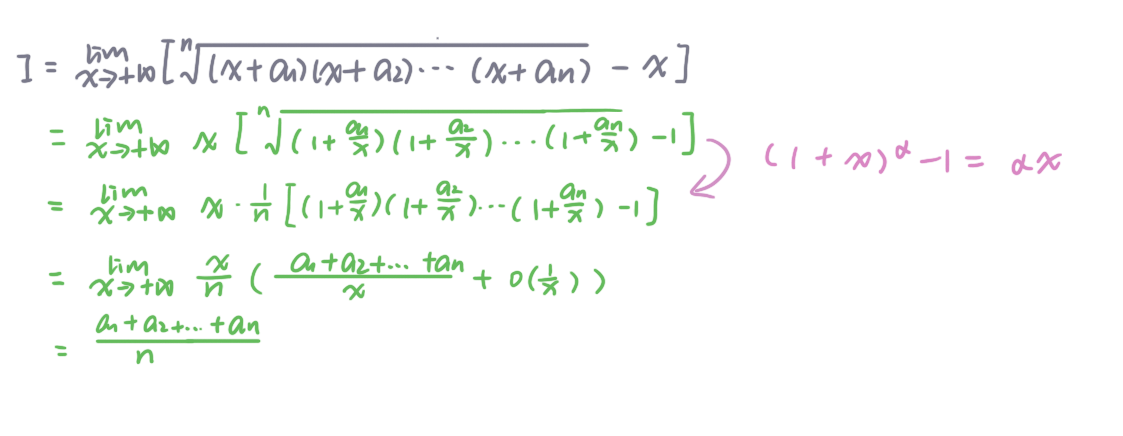 I = lim x→+∞ [ ⁿ√(x+a₁)(x+a₂)⋯(x+aₙ) − x ]
= lim x→+∞ x [ ⁿ√(1+a₁/x)(1+a₂/x)⋯(1+aₙ/x) −1 ]
(1+x)^α −1 = αx
= lim x→+∞ x · 1/n [ (1+a₁/x)(1+a₂/x)⋯(1+aₙ/x) −1 ]
= lim x→+∞ x/n ( (a₁+a₂+⋯+aₙ)/x + o(1/x) )
= (a₁+a₂+⋯+aₙ)/n